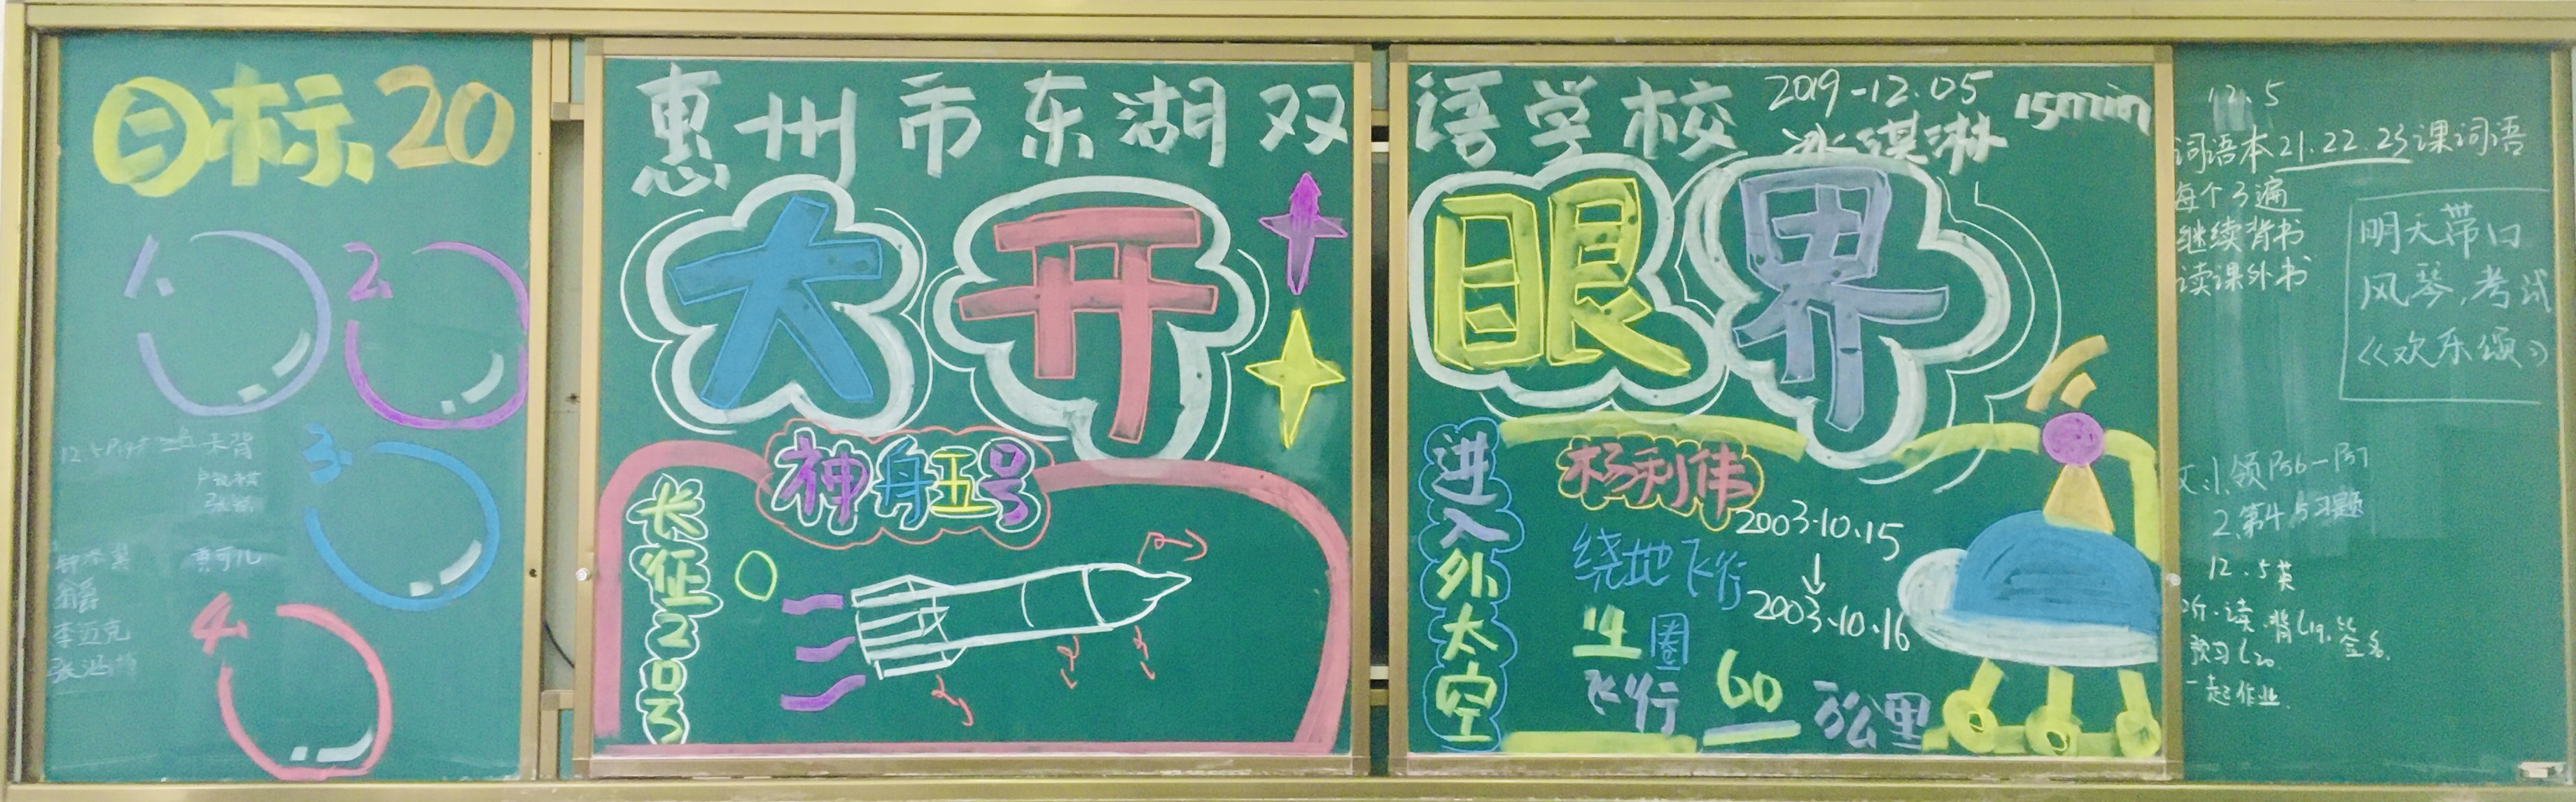 目标20
1.
2.
3.
4.
12.5
未背
黄可儿
李迈克
惠州市东湖双语学校
2019-12.05
冰淇淋
15min
大开眼界
神舟五号
长征2号
进入外太空
杨利伟
2003.10.15
↓
2003.10.16
绕地飞行
14圈
飞行60万公里
12.5
词语本21.22.23课词语
每个3遍
继续背书
读课外书
明天带口
风琴,考试
《欢乐颂》
领P56-P57
2.第4与习题
12.5英
听.读.背L19.签名.
预习L20
一起作业.